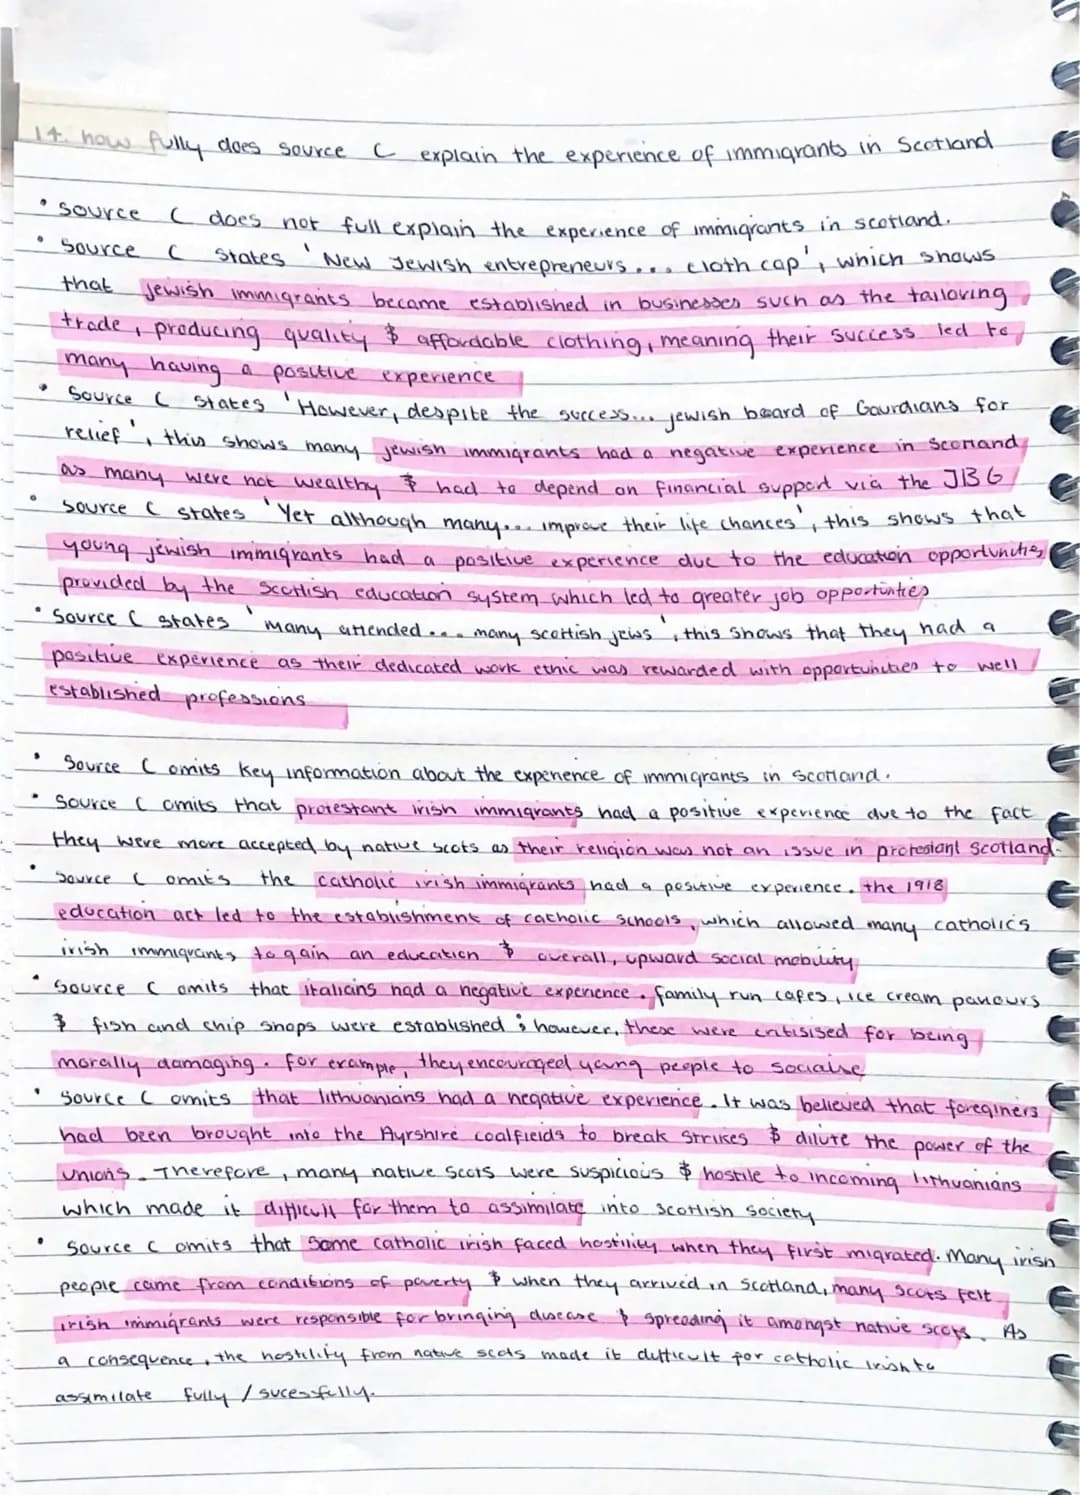 14. how fully does source C explain the experience of immigrants in Scotland
• source C does not full explain the experience of immigrants in scotland.
• Source C states 'New Jewish entrepreneurs... cloth cap', which shows
that jewish immigrants became established in businesses such as the tailoring
trade, producing quality & affordable clothing, meaning their success led to
many having a positive experience
• Source C states 'However, despite the success... jewish board of Gaurdians for
relief', this shows many jewish immigrants had a negative experience in Scotland
as many were not wealthy & had to depend on financial support via the JBG
• Source C states 'Yet although many... improve their life chances', this shows that
young jewish immigrants had a positive experience due to the education opportunities
provided by the Scottish education system which led to greater job opportunties
• Source C states 'many attended... many scottish jews', this shows that they had a
positive experience as their dedicated work ethic was rewarded with opportunities to well
established professions
• Source C omits key information about the experience of immigrants in Scotland.
• Source C omits that protestant irish immigrants had a positive experience due to the fact
they were more accepted by native scots as their religion was not an issue in protestant Scotland.
• Source C omits the catholic irish immigrants had a positive experience. the 1918
education act led to the establishment of catholic schools, which allowed many catholics
irish immigrants to gain an education & overall, upward social mobility
• Source C omits that italians had a negative experience. family run cafes, ice cream parlours
& fish and chip shops were established; however, these were critisised for being
morally damaging. for example, they encouraged young people to socialise
• Source C omits that lithuanians had a negative experience. It was believed that foreginers
had been brought into the Ayrshire coalfields to break strikes & dilute the power of the
unions. Therefore, many native scots were suspicious & hostile to incoming lithuanians
which made it difficult for them to assimilate into scottish society
• Source C omits that some catholic irish faced hostility when they first migrated. Many irish
people came from conditions of poverty & when they arrived in Scotland, many scots felt
irish immigrants were responsible for bringing disease & spreading it amongst native scots. As
a consequence, the hostility from native scots made it difficult for catholic irish to
assimilate fully / sucessfully.